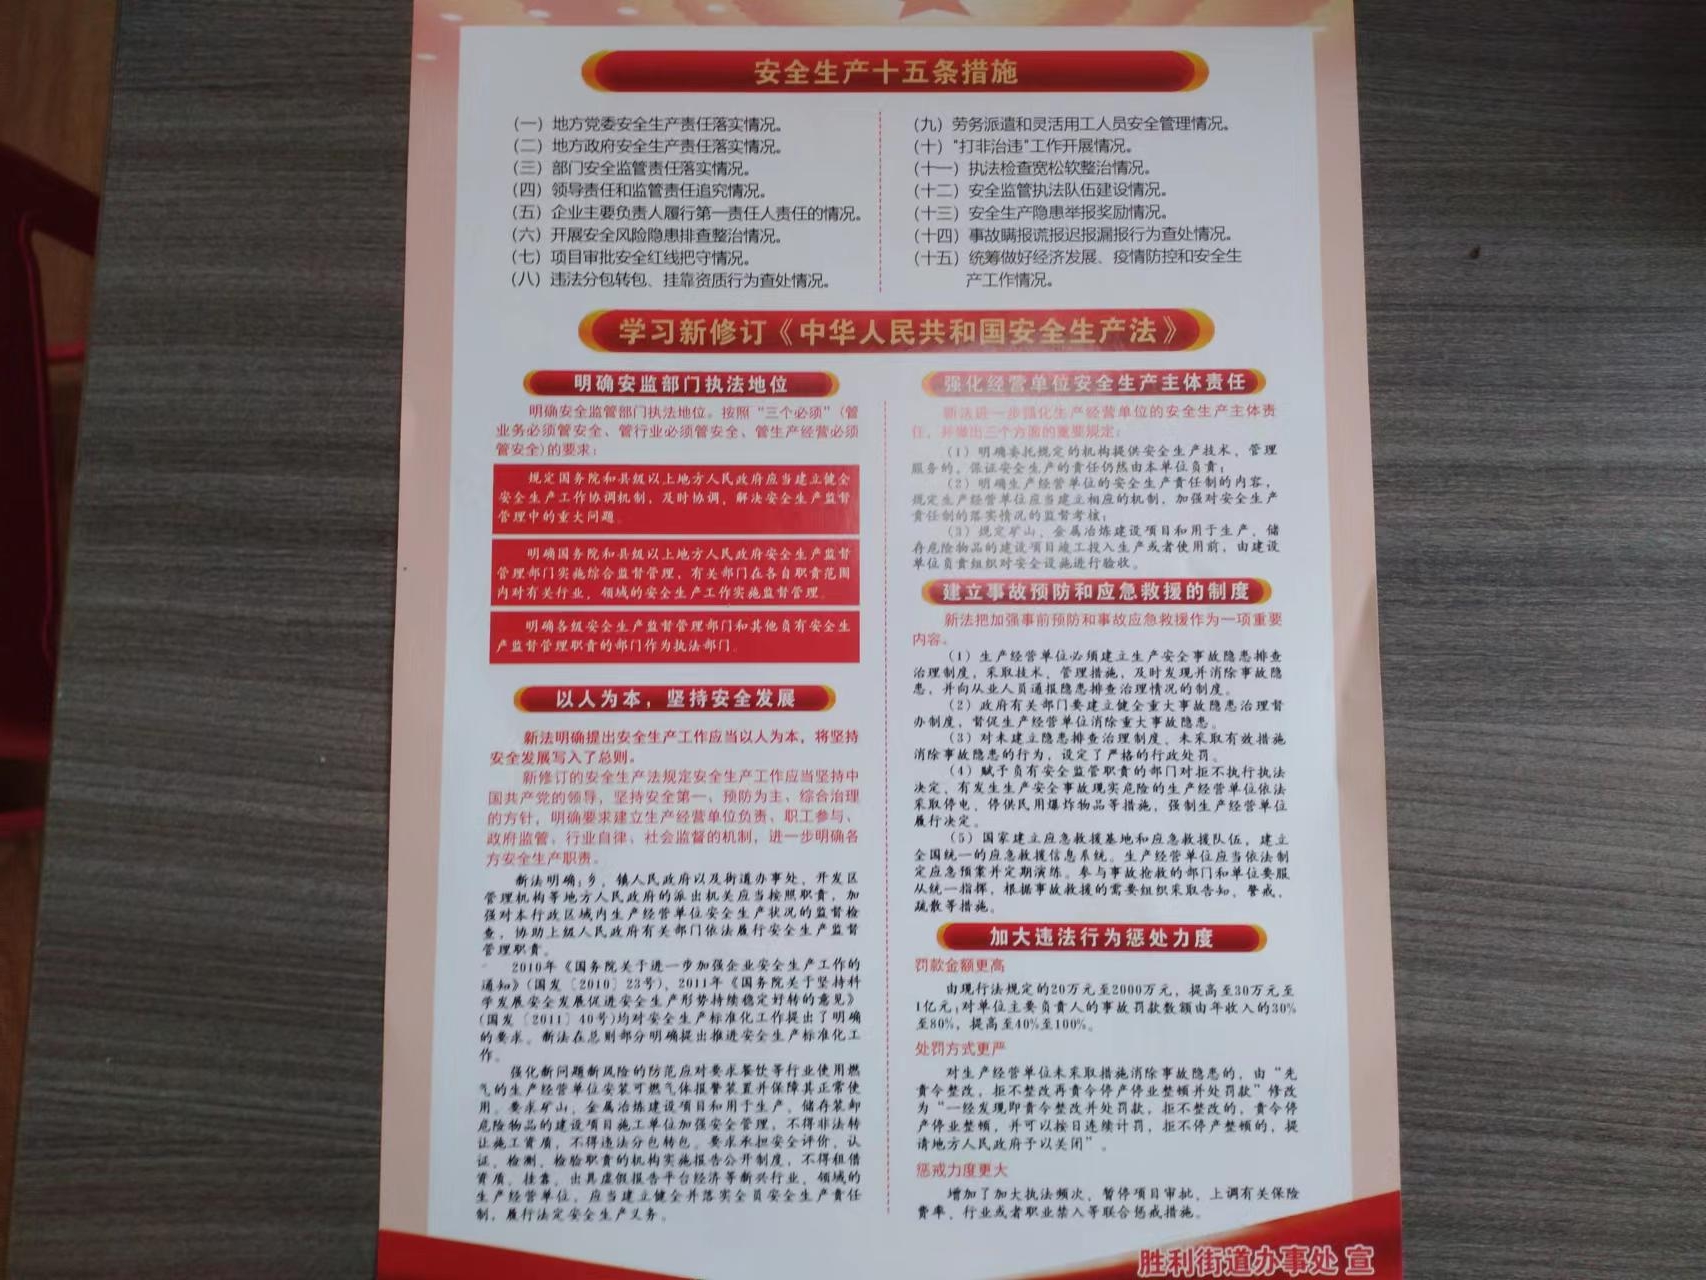 安全生产十五条措施
(一) 地方党委安全生产责任落实情况。
(二) 地方政府安全生产责任落实情况。
(三) 部门安全监管责任落实情况。
(四) 领导责任和监管责任追究情况。
(五) 企业主要负责人履行第一责任人责任的情况。
(六) 开展安全风险隐患排查整治情况。
(七) 项目审批安全红线把守情况。
(八) 违法分包转包、挂靠资质行为查处情况。
(九) 劳务派遣和灵活用工人员安全管理情况。
(十) "打非治违"工作开展情况。
(十一) 执法检查宽松软整治情况。
(十二) 安全监管执法队伍建设情况。
(十三) 安全生产隐患举报奖励情况。
(十四) 事故瞒报谎报迟报漏报行为查处情况。
(十五) 统筹做好经济发展、疫情防控和安全生
产工作情况。
学习新修订《中华人民共和国安全生产法》
明确安监部门执法地位
明确安全监管部门执法地位。按照“三个必须”(管
业务必须管安全、管行业必须管安全、管生产经营必须
管安全)的要求：
规定国务院和县级以上地方人民政府应当建立健全
安全生产工作协调机制，及时协调，解决安全生产监督
管理中的重大问题。
明确国务院和县级以上地方人民政府安全生产监督
管理部门实施综合监督管理，有关部门在各自职责范围
内对有关行业，领域的安全生产工作实施监督管理。
明确各级安全生产监督管理部门和其他负有安全生
产监督管理职责的部门作为执法部门。
以人为本，坚持安全发展
新法明确提出安全生产工作应当以人为本，将坚持
安全发展写入了总则。
新修订的安全生产法规定安全生产工作应当坚持中
国共产党的领导，坚持安全第一、预防为主、综合治理
的方针，明确要求建立生产经营单位负责、职工参与、
政府监管、行业自律、社会监督的机制，进一步明确各
方安全生产职责。
新法明确：乡、镇人民政府以及街道办事处、开发区
管理机构等地方人民政府的派出机关应当按照职责，加
强对本行政区域内生产经营单位安全生产状况的监督检
查，协助上级人民政府有关部门依法履行安全生产监督
管理职责。
2010年《国务院关于进一步加强企业安全生产工作的
通知》(国发〔2010〕23号)，2011年《国务院关于坚持科
学发展安全发展促进安全生产形势持续稳定好转的意见》
(国发〔2011〕40号)均对安全生产标准化工作提出了明确
的要求。新法在总则部分明确提出推进安全生产标准化工
作。
强化新问题新风险的防范应对要求餐饮等行业使用燃
气的生产经营单位安装可燃气体报警装置并保障其正常使
用。要求矿山、金属冶炼建设项目和用于生产、储存装卸
危险物品的建设项目施工单位加强安全管理，不得非法转
让施工资质，不得违法分包转包。要求承担安全评价、认
证、检测、检验职责的机构实施报告公开制度，不得租借
资质、挂靠、出具虚假报告平台经济等新兴行业、领域的
生产经营单位，应当建立健全并落实全员安全生产责任
制，履行法定安全生产义务。
强化经营单位安全生产主体责任
新法进一步强化生产经营单位的安全生产主体责
任，并做出三个方面的重要规定：
(1) 明确委托规定的机构提供安全生产技术、管理
服务的，保证安全生产的责任仍然由本单位负责；
(2) 明确生产经营单位的安全生产责任制的内容，
规定生产经营单位应当建立相应的机制，加强对安全生产
责任制的落实情况的监督考核；
(3) 规定矿山、金属冶炼建设项目和用于生产、储
存危险物品的建设项目竣工投入生产或者使用前，由建设
单位负责组织对安全设施进行验收。
建立事故预防和应急救援的制度
新法把加强事前预防和事故应急救援作为一项重要
内容。
(1) 生产经营单位必须建立生产安全事故隐患排查
治理制度，采取技术、管理措施，及时发现并消除事故隐
患，并向从业人员通报隐患排查治理情况的制度。
(2) 政府有关部门要建立健全重大事故隐患治理督
办制度，督促生产经营单位消除重大事故隐患。
(3) 对未建立隐患排查治理制度、未采取有效措施
消除事故隐患的行为，设定了严格的行政处罚。
(4) 赋予负有安全监管职责的部门对拒不执行执法
决定、有发生生产安全事故现实危险的生产经营单位依法
采取停电、停供民用爆炸物品等措施，强制生产经营单位
履行决定。
(5) 国家建立应急救援基地和应急救援队伍，建立
全国统一的应急救援信息系统。生产经营单位应当依法制
定应急预案并定期演练。参与事故抢救的部门和单位要服
从统一指挥，根据事故救援的需要组织采取告知、警戒、
疏散等措施。
加大违法行为惩处力度
罚款金额更高
由现行法规定的20万元至2000万元，提高至30万元至
1亿元；对单位主要负责人的事故罚款数额由年收入的30%
至80%，提高至40%至100%。
处罚方式更严
对生产经营单位未采取措施消除事故隐患的，由“先
责令整改，拒不整改再责令停产停业整顿并处罚款”修改
为“一经发现即责令整改并处罚款，拒不整改的，责令停
产停业整顿，并可以按日连续计罚，拒不停产整顿的，提
请地方人民政府予以关闭”。
惩戒力度更大
增加了加大执法频次、暂停项目审批、上调有关保险
费率、行业或者职业禁入等联合惩戒措施。
胜利街道办事处 宣